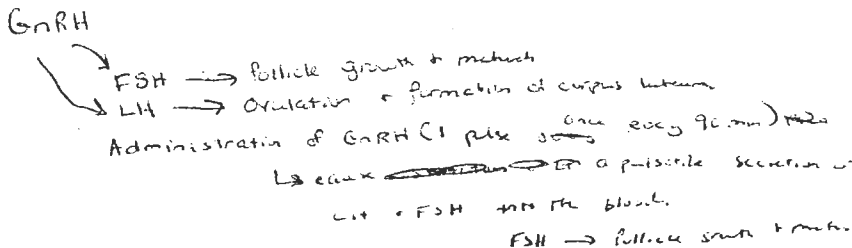 GnRH
FSH → follicle growth +
LH → Ovulation + formation of corpus luteum
Administration of GnRH (1 pulse once every 90 min)
↳ a pulsatile secretion of
LH + FSH into the blood.
FSH → follicle growth +